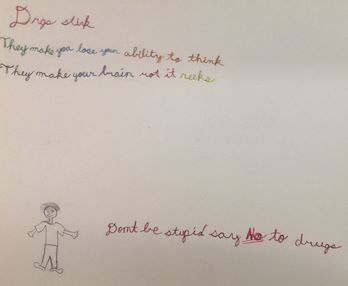 Drgs stink
They make you lose your ability to think
They make your brain rot it reeks
Dont be stupid say No to drugs